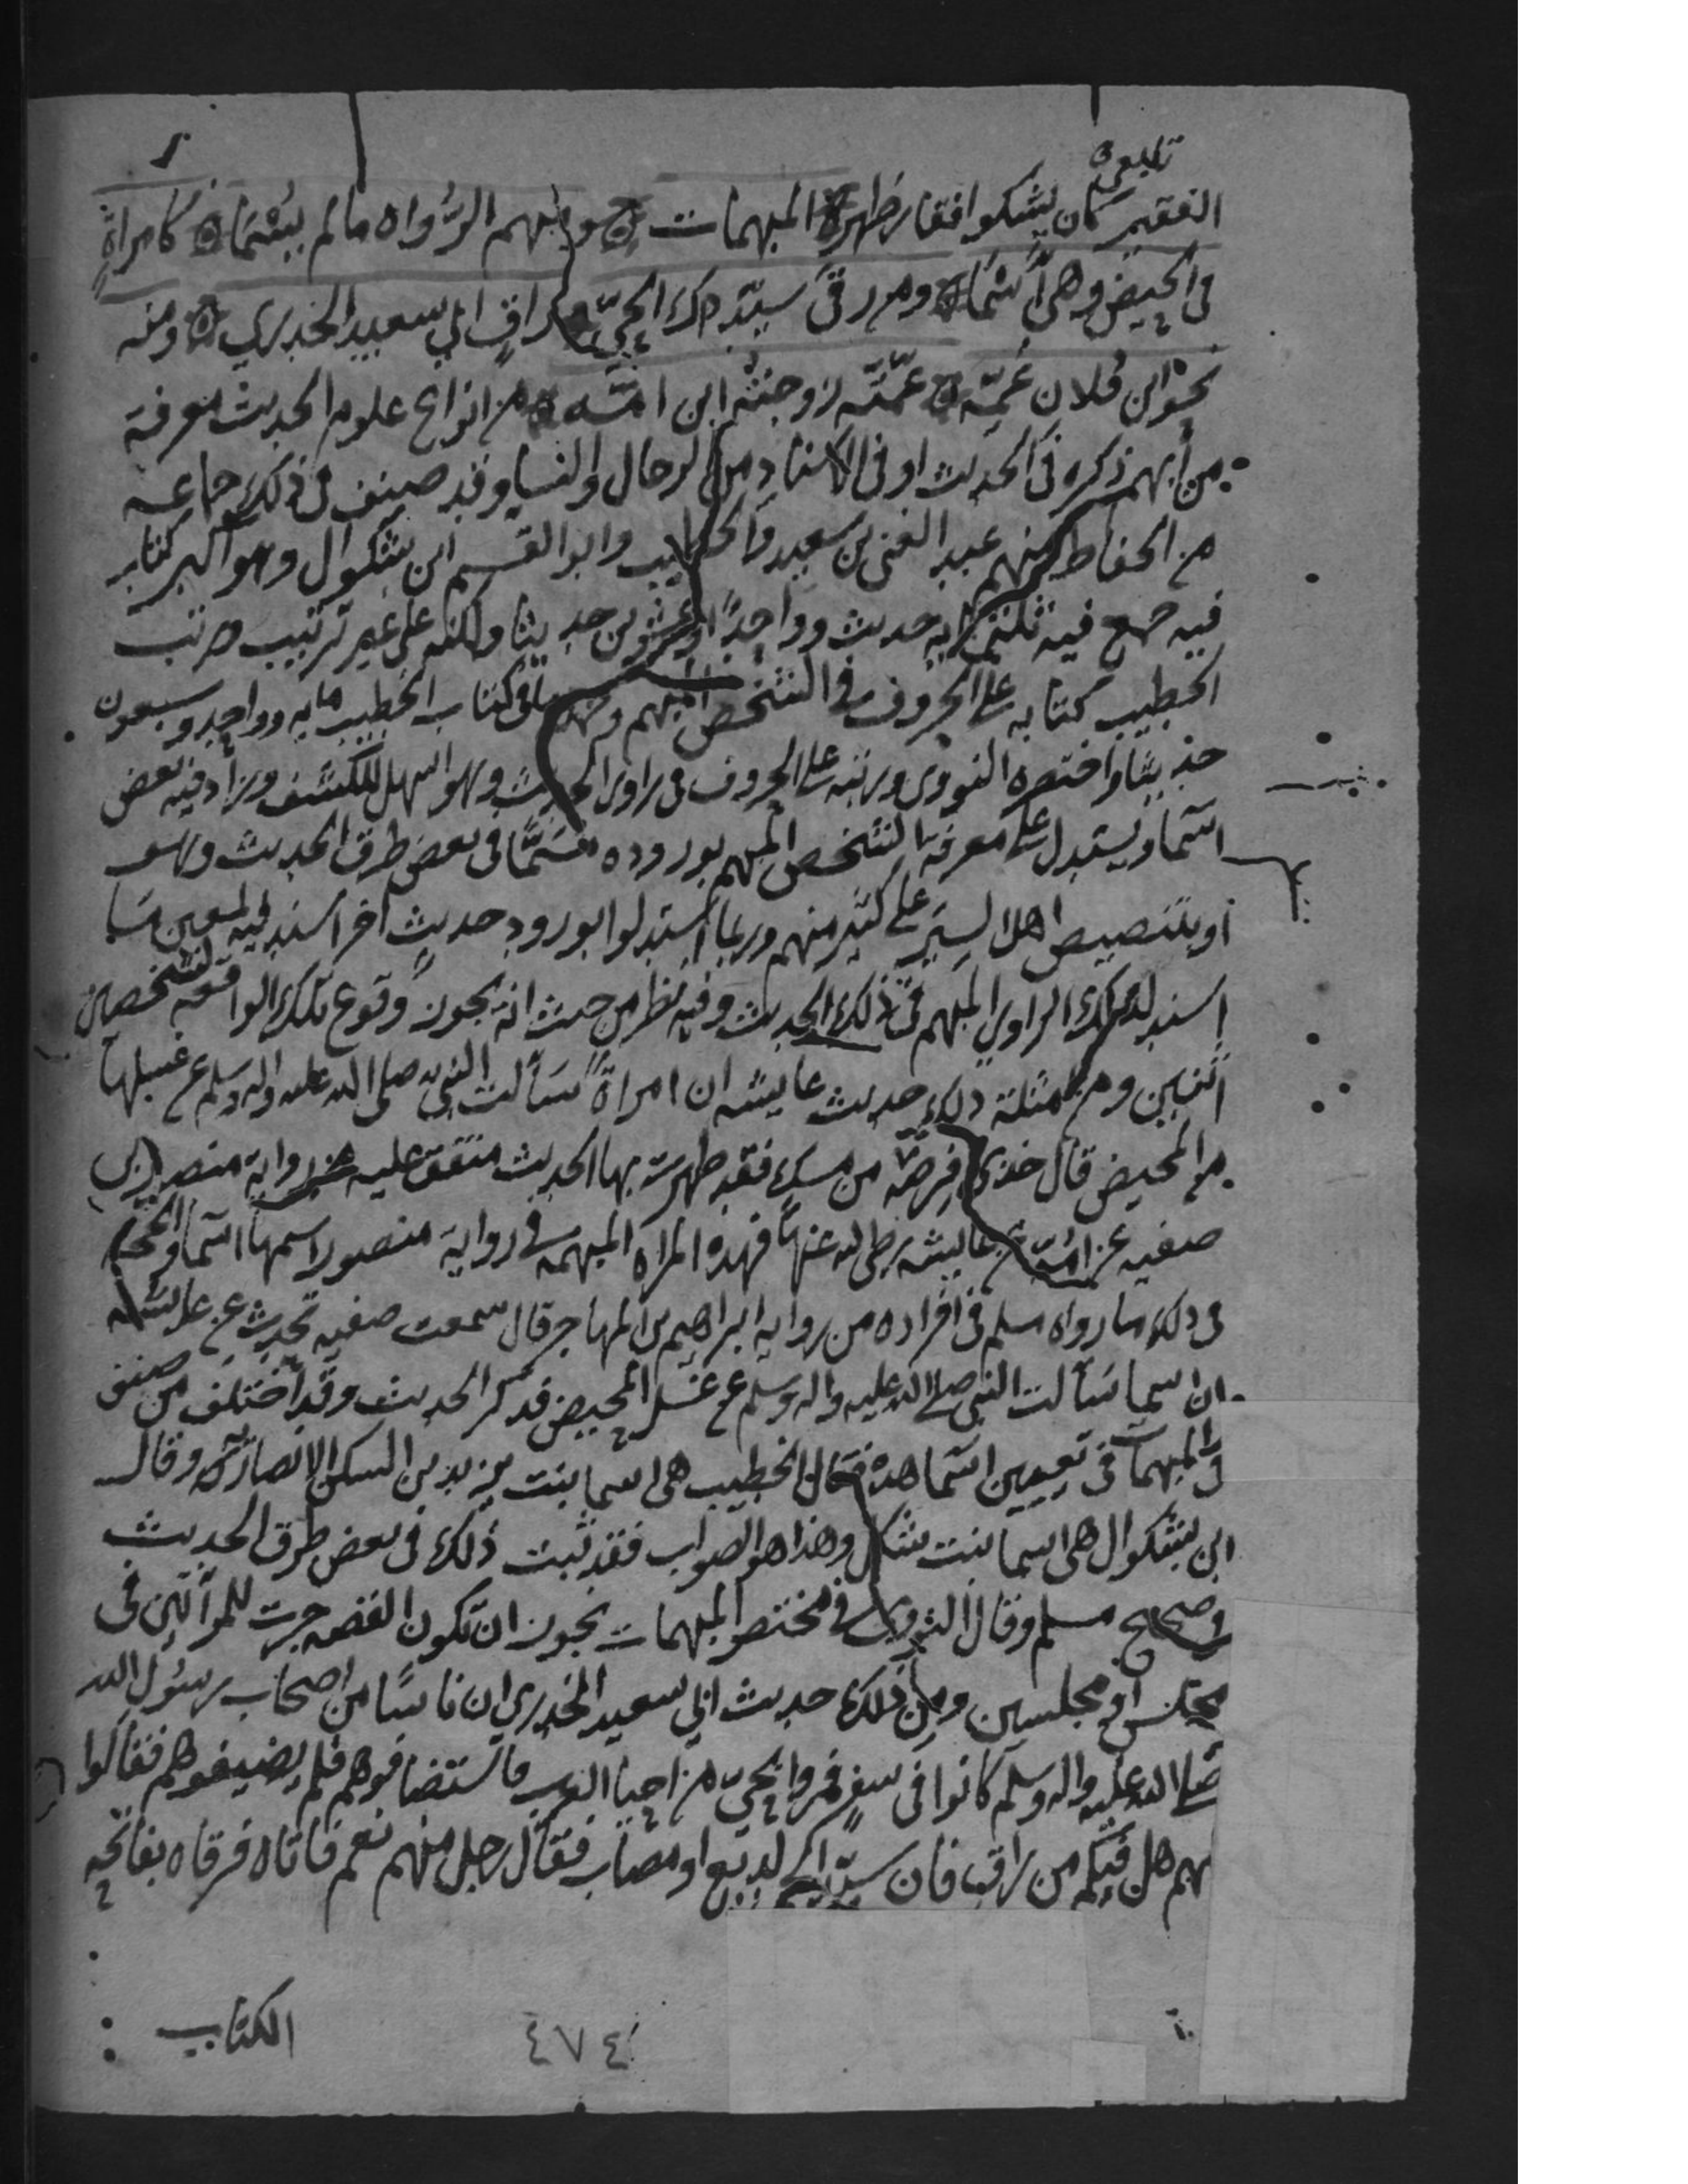 تابعي
الفقير كان يشكو افقار ظهره المبهمات ومبهم الرواه مالم يسما كامراة
في الحيض وهي اسما ومن رقى سيد ذاك الحي راق ابي سعيد الخدري ومنه
نحو ابن فلان عمه عمته زوجته ابن امه من انواع علوم الحديث معرفة
من أبهم ذكره في الحديث او في الاسناد من الرجال والنسا وقد صنف في ذلك جماعه
من الحفاظ منهم عبد الغني بن سعيد والخطيب وابو القسم ابن بشكوال وهو اكبر كتاب
فيه جمع فيه ثلثمايه حديث وواحدًا وعشرين حديثا ولكنه على غير ترتيب ورتب
الخطيب كتابه على الحروف في الشخص المبهم وجملة ما في كتاب الخطيب مايه وواحد وسبعون
حديثا واختصره النووي ورتبه على الحروف في راوي الحديث وهو اسهل للكشف وزاد فيه بعض
اسما ويستدل على معرفة الشخص المبهم بوروده مسمًّا في بعض طرق الحديث وهو
أو بتنصيص اهل السير على كثير منهم وربما استدلوا بورود حديث آخر أسند فيه لمعين ما
اسند لذلك الراوي المبهم في ذلك الحديث وفيه نظر من حيث انه يجوز وقوع تلك الواقعه لشخصين
اثنين ومن امثلة ذلك حديث عايشه ان امراة سألت النبي صلى الله عليه واله وسلم عن غسلها
من المحيض قال خذي فرصة من مسك فقد طهرت بها الحديث متفق عليه من رواية منصور بن
صفيه عن امه عن عايشه رضي الله عنها فهذه المراه المبهمه في رواية منصور اسمها اسما والحجة
في ذلك ما رواه مسلم في افراده من روايه ابراهيم بن المهاجر قال سمعت صفيه تحدث عن عايشه
ان اسما سألت النبي صلى الله عليه واله وسلم عن غسل المحيض فذكر الحديث وقد اختلف من صنف
في المبهمات في تعيين اسما هذه فقال الخطيب هي اسما بنت يزيد بن السكن الانصاريه وقال
ابن بشكوال هي اسما بنت شكل وهذا هو الصواب فقد ثبت ذلك في بعض طرق الحديث
في صحيح مسلم وقال النووي في مختصر المبهمات يجوز ان تكون القصه جرت للمرأتين في
مجلس أو مجلسين ومن ذلك حديث ابي سعيد الخدري ان ناسًا من اصحاب رسول الله
صلى الله عليه واله وسلم كانوا في سفر فمروا بحي من احيا العرب فاستضافوهم فلم يضيفوهم فقالوا
لهم هل فيكم من راق فان سيد الحي لديغ او مصاب فقال رجل منهم نعم فاتاه فرقاه بفاتحه
الكتاب
٤٧٤